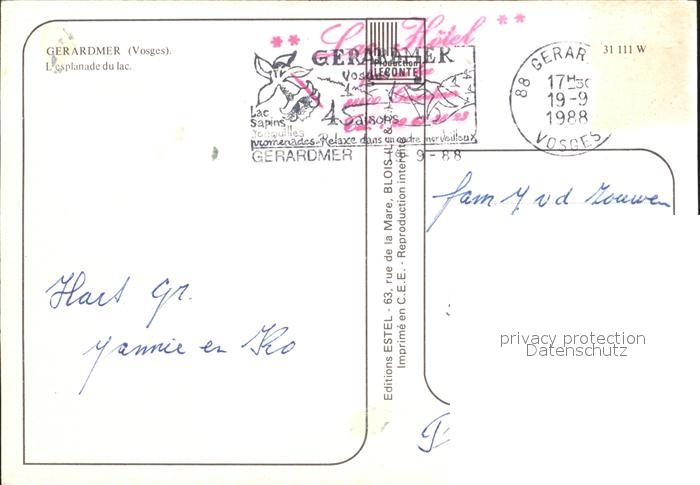 GERARDMER (Vosges).
L'esplanade du lac.
** Hôtel **
GERARDMER
Vosges
Production
LECONTE
Lac
Sapins
Jonquilles
4 saisons
promenades-Relaxe dans un cadre merveilleux
GERARDMER 19-9-88
88 GERAR
17H30
19-9
1988
VOSGES
31 111 W
Editions ESTEL - 63, rue de la Mare, BLOIS
Imprimé en C.E.E. - Reproduction interdite
fam J vd Zouwen
Hart Gr.
Yannie en Ko
privacy protection
Datenschutz